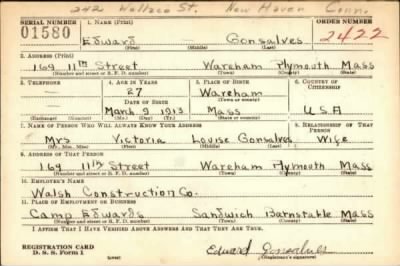 242 Wallace St. New Haven Conn.
SERIAL NUMBER 1. NAME (Print) ORDER NUMBER
01580 Edward Gonsalves 2422
(First) (Middle) (Last)
2. ADDRESS (Print)
169 11th Street Wareham Plymouth Mass
(Number and street or R. F. D. number) (Town) (County) (State)
3. TELEPHONE 4. AGE IN YEARS 5. PLACE OF BIRTH 6. COUNTRY OF CITIZENSHIP
27 Wareham
DATE OF BIRTH (Town or county)
March 9 1913 Mass U S A
(Exchange) (Number) (Mo.) (Day) (Yr.) (State or country)
7. NAME OF PERSON WHO WILL ALWAYS KNOW YOUR ADDRESS 8. RELATIONSHIP OF THAT PERSON
Mrs Victoria Louise Gonsalves Wife
(Mr., Mrs., Miss) (First) (Middle) (Last)
9. ADDRESS OF THAT PERSON
169 11th Street Wareham Plymouth Mass
(Number and street or R. F. D. number) (Town) (County) (State)
10. EMPLOYER'S NAME
Walsh Construction Co.
11. PLACE OF EMPLOYMENT OR BUSINESS
Camp Edwards Sandwich Barnstable Mass
(Number and street or R. F. D. number) (Town) (County) (State)
I AFFIRM THAT I HAVE VERIFIED ABOVE ANSWERS AND THAT THEY ARE TRUE.
REGISTRATION CARD
D. S. S. Form 1 (over) Edward Gonsalves
(Registrant's signature)